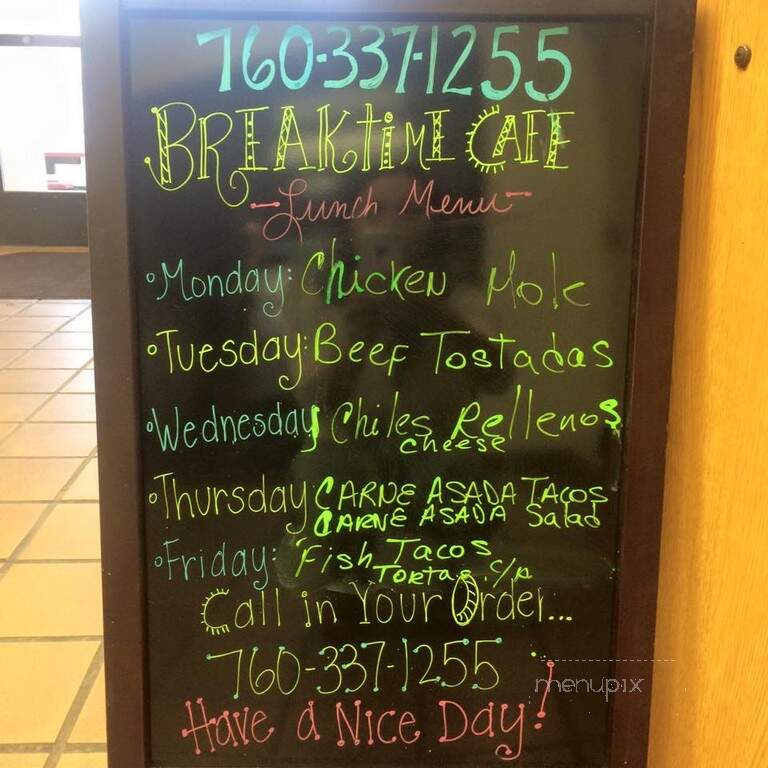 760-337-1255
BREAKtiME CAFE
-Lunch Menu-
Monday: Chicken Mole
Tuesday: Beef Tostadas
Wednesday Chiles Rellenos
cheese
Thursday CARNE ASADA TACOS
CARNE ASADA Salad
Friday: Fish Tacos
Tortas c/p
Call in Your Order...
760-337-1255
menupix
Have a Nice Day!